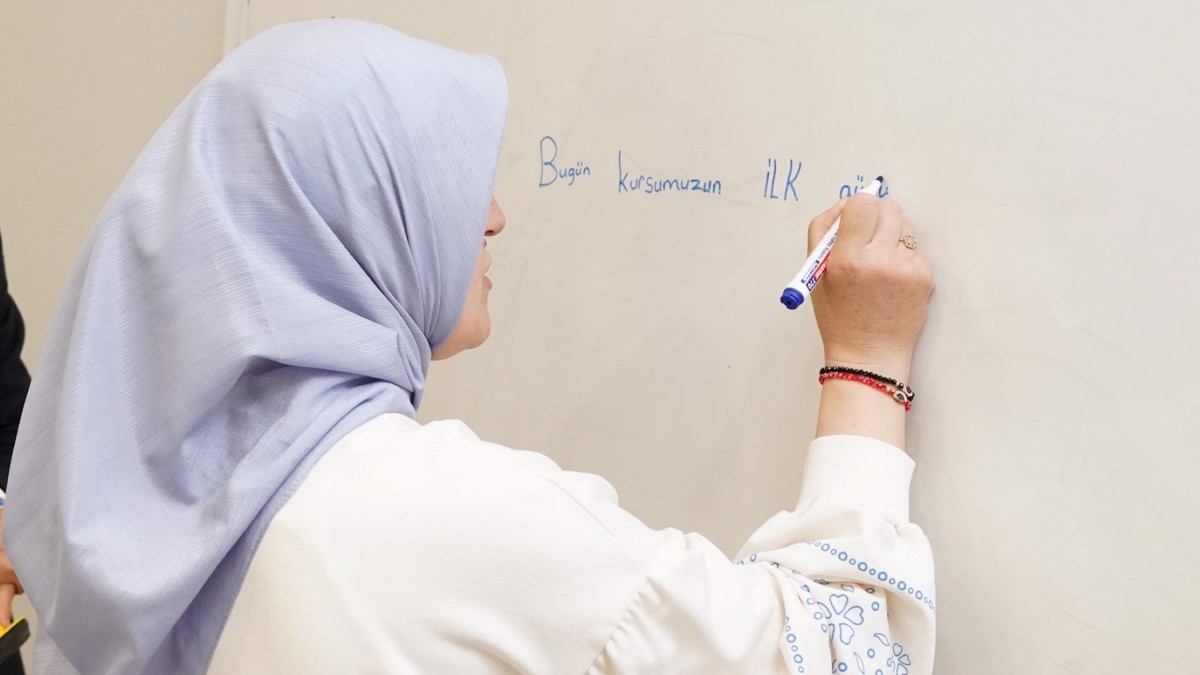 Bugün kurşumuzun İLK